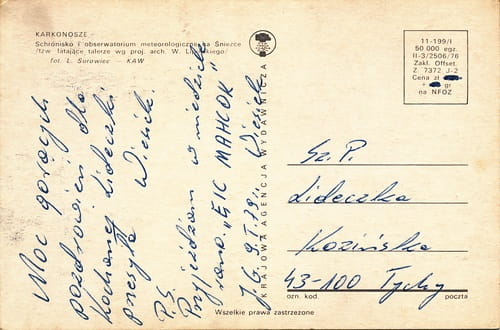 KARKONOSZE
Schronisko i obserwatorium meteorologiczne na Śnieżce
/tzw. latające talerze wg proj. arch. W. Lipińskiego/
fot. L. Surowiec — KAW
Moc gorących
pozdrowień dla
kochanej Lideczki
przesyła Wiesiek.
P.S.
Przyjeżdżam w niedzielę
rano. "EIC MAHLOK"
J.G. 9.I.79r. Wiesiek
KRAJOWA AGENCJA WYDAWNICZA
11-199/I
50 000 egz.
II-3/2506/76
Zakl. Offset.
Z. 7372 J-2
Cena zł
+ gr
na NFOZ
Sz. P.
Lideczka
Kozińska
43-100 Tychy
ozn. kod. poczta
Wszelkie prawa zastrzeżone